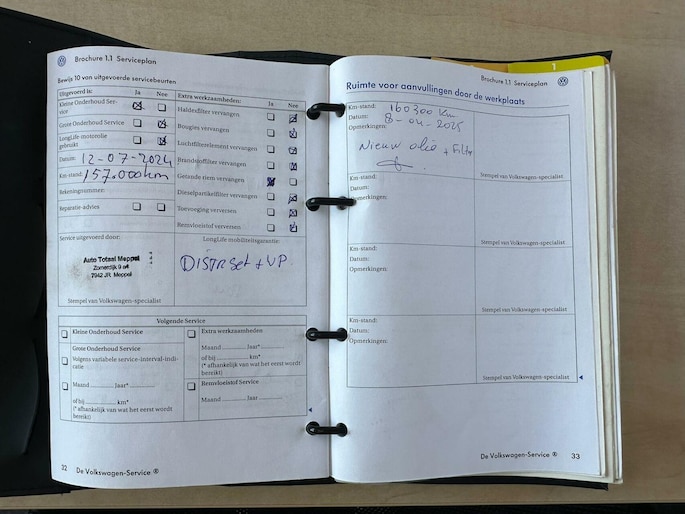 Brochure 1.1 Serviceplan
Bewijs 10 van uitgevoerde servicebeurten
Uitgevoerd is: Ja Nee
Kleine Onderhoud Ser-
vice
Grote Onderhoud Service
LongLife-motorolie
gebruikt
Datum: 12-07-2024
Km-stand: 157.000km
Rekeningnummer:
Reparatie-advies
Extra werkzaamheden: Ja Nee
Haldexfilter vervangen
Bougies vervangen
Luchtfilterelement vervangen
Brandstoffilter vervangen
Getande riem vervangen
Dieselpartikelfilter vervangen
Toevoeging verversen
Remvloeistof verversen
Service uitgevoerd door:
Auto Totaal Meppel
Zomerdijk 9
7942 JR Meppel
Stempel van Volkswagen-specialist
LongLife mobiliteitsgarantie:
DISTR set + VP
Volgende Service
Kleine Onderhoud Service
Grote Onderhoud Service
Volgens variabele service-interval-indi-
catie
Maand Jaar*
of bij km*
(* afhankelijk van wat het eerst wordt
bereikt)
Extra werkzaamheden
Maand Jaar*
of bij km*
(* afhankelijk van wat het eerst wordt
bereikt)
Remvloeistof Service
Maand Jaar
22 De Volkswagen-Service ®
1
Brochure 1.1 Serviceplan
Ruimte voor aanvullingen door de werkplaats
Km-stand: 160300 km
Datum: 8-04-2025
Opmerkingen:
Nieuw olie + Filter
Stempel van Volkswagen-specialist
Km-stand:
Datum:
Opmerkingen:
Stempel van Volkswagen-specialist
Km-stand:
Datum:
Opmerkingen:
Stempel van Volkswagen-specialist
Km-stand:
Datum:
Opmerkingen:
Stempel van Volkswagen-specialist
De Volkswagen-Service ® 33